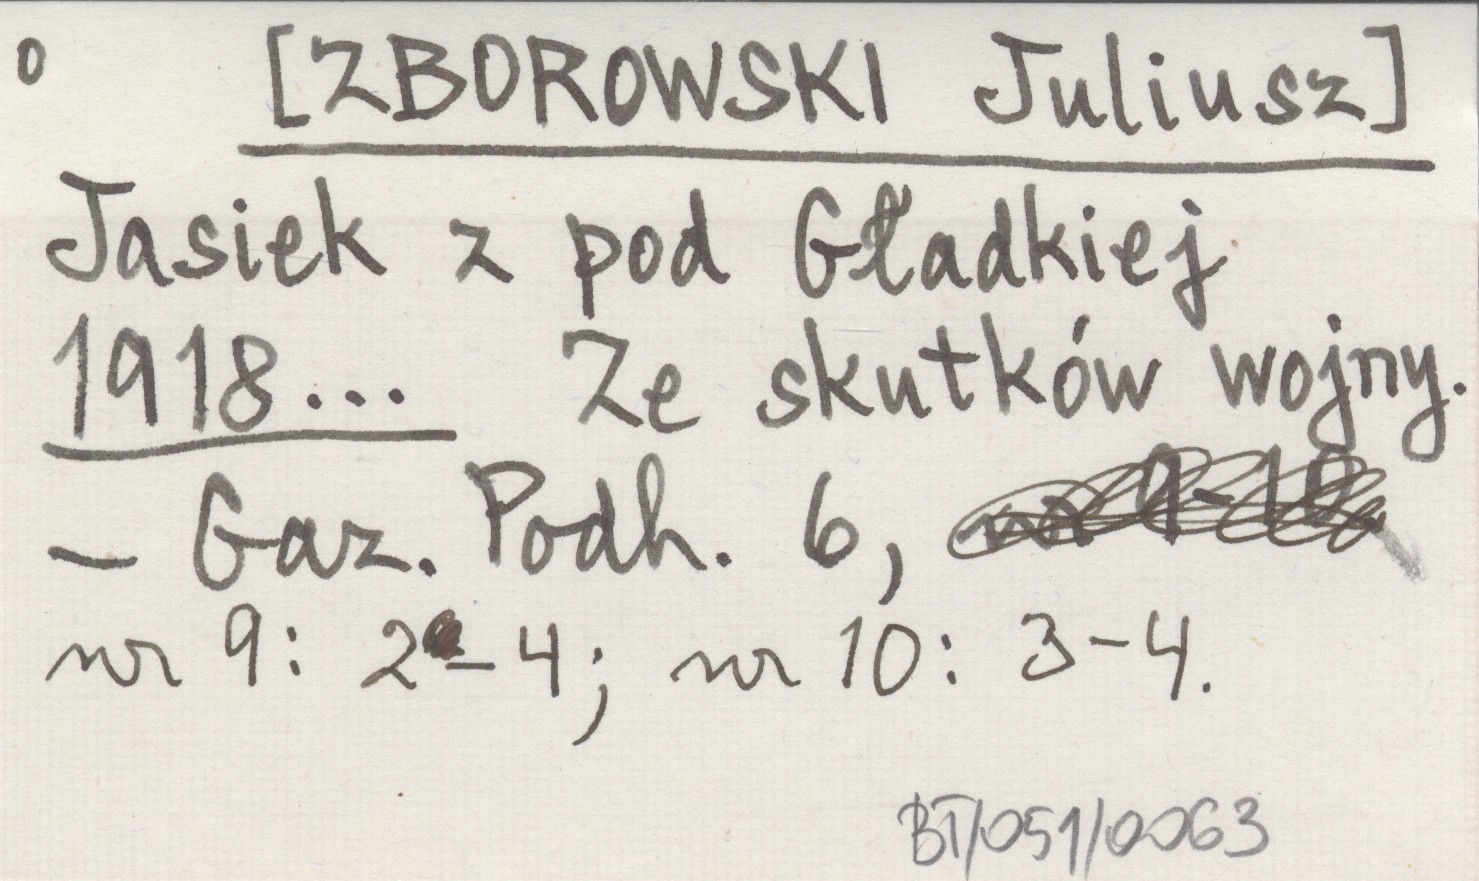 o [ZBOROWSKI Juliusz]
Jasiek z pod Gładkiej
1918... Ze skutków wojny.
– Gaz. Podh. 6,
nr 9: 2–4; nr 10: 3–4.
BT/051/0063